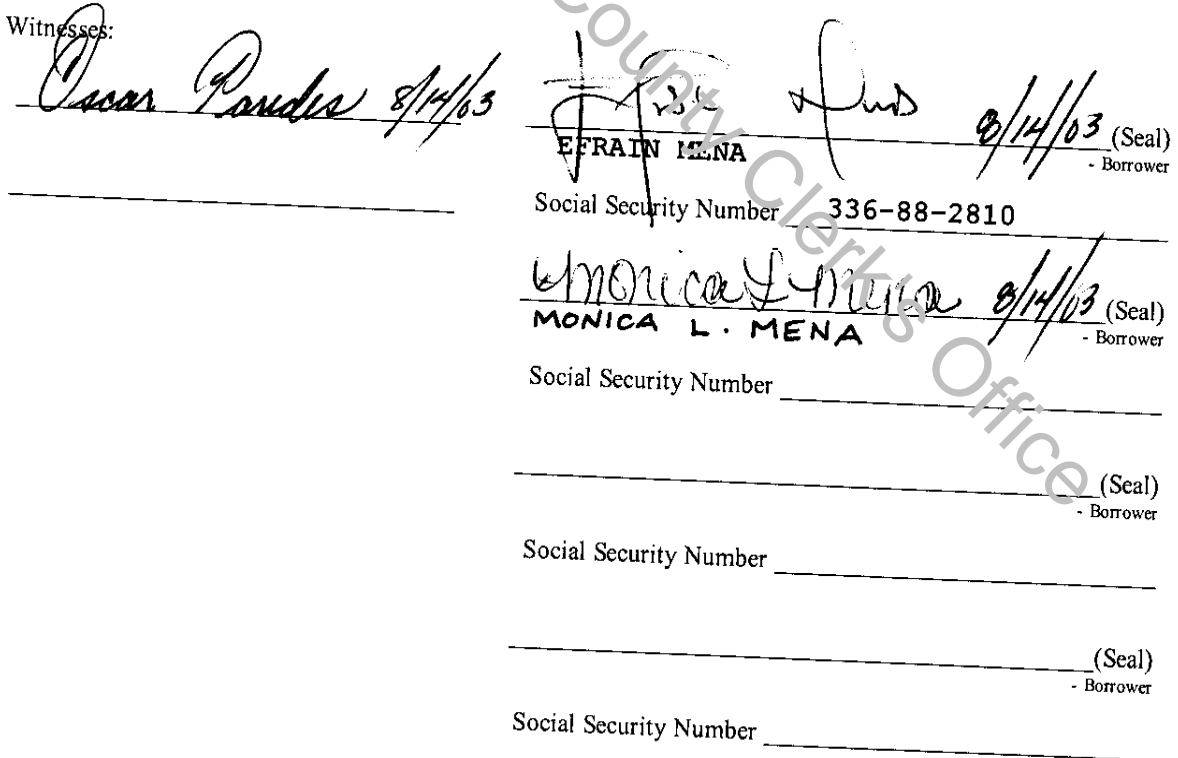 Witnesses:
Oscar Paredes 8/14/03
8/14/03 (Seal)
EFRAIN MENA
- Borrower
Social Security Number 336-88-2810
Monica L Mena 8/14/03 (Seal)
MONICA L. MENA
- Borrower
Social Security Number
(Seal)
- Borrower
Social Security Number
(Seal)
- Borrower
Social Security Number
County Clerk's Office